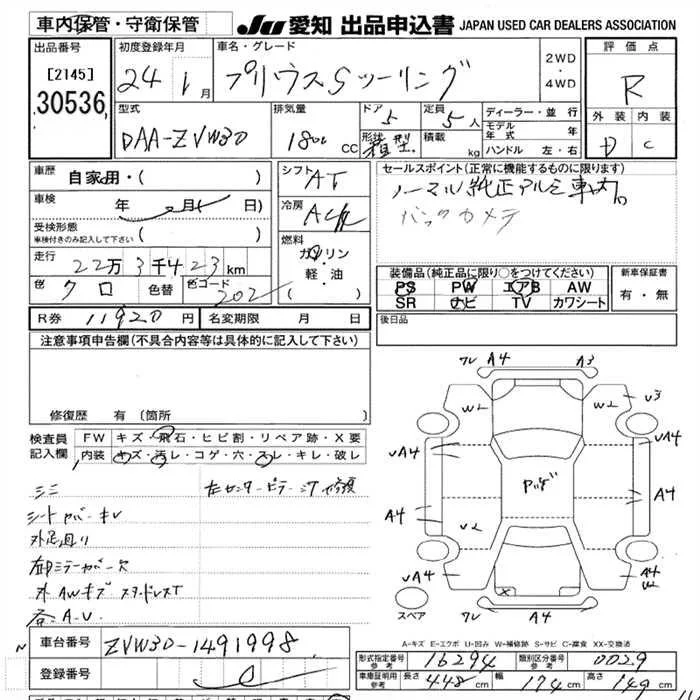 車内保管・守衛保管
JU 愛知 出品申込書 JAPAN USED CAR DEALERS ASSOCIATION
出品番号
[2145]
30536
初度登録年月
24 1月
車名・グレード
プリウスSツーリング
2WD
・
4WD
評価点
R
外装 内装
D C
型式
DAA-ZVW30
排気量
1800 CC
ドア 5
形状 箱型
定員 5人
積載 kg
ディーラー・並行
モデル年式 年
ハンドル 左・右
車歴 自家用・( )
車検 年 月( 日)
受検形態
車検付きのみ記入して下さい ( )
走行 22万3千423km
色 クロ 色替 色コード 202
シフト AT
冷房 A/C
燃料
ガソリン
・
軽・油
( )
セールスポイント(正常に機能するものに限ります)
ノーマル純正アルミ車内
バックカメラ
装備品(純正品に限り○をつけてください)
PS PW エアB AW
SR ナビ TV カワシート
新車保証書
有・無
R券 11920円 名変期限 月 日
後日品
注意事項申告欄(不具合内容等は具体的に記入して下さい)
修復歴 有(箇所
検査員記入欄
FW キズ・飛石・ヒビ割・リペア跡・X要
内装 キズ・汚レ・コゲ・穴・スレ・キレ・破レ
シミ 左センターピラー 修復
シートカバーキレ
外足廻り
御ミラーカバー欠
外AWキズ スタッドレスT
各A.U
車台番号 ZVW30-1491998
登録番号
ワレ A4 A3
W2 W2 U3
UA4 UA4
A4 A4
U2
UA4 A4
W2
スペア
ワレ A4
A-キズ E-エクボ U-凹み W-補修跡 S-サビ C-腐食 XX-交換済
形式指定番号 参考 16294 類別区分番号 参考 0029
車庫証明用 参考 長さ 448cm 幅 174cm 高さ 149cm